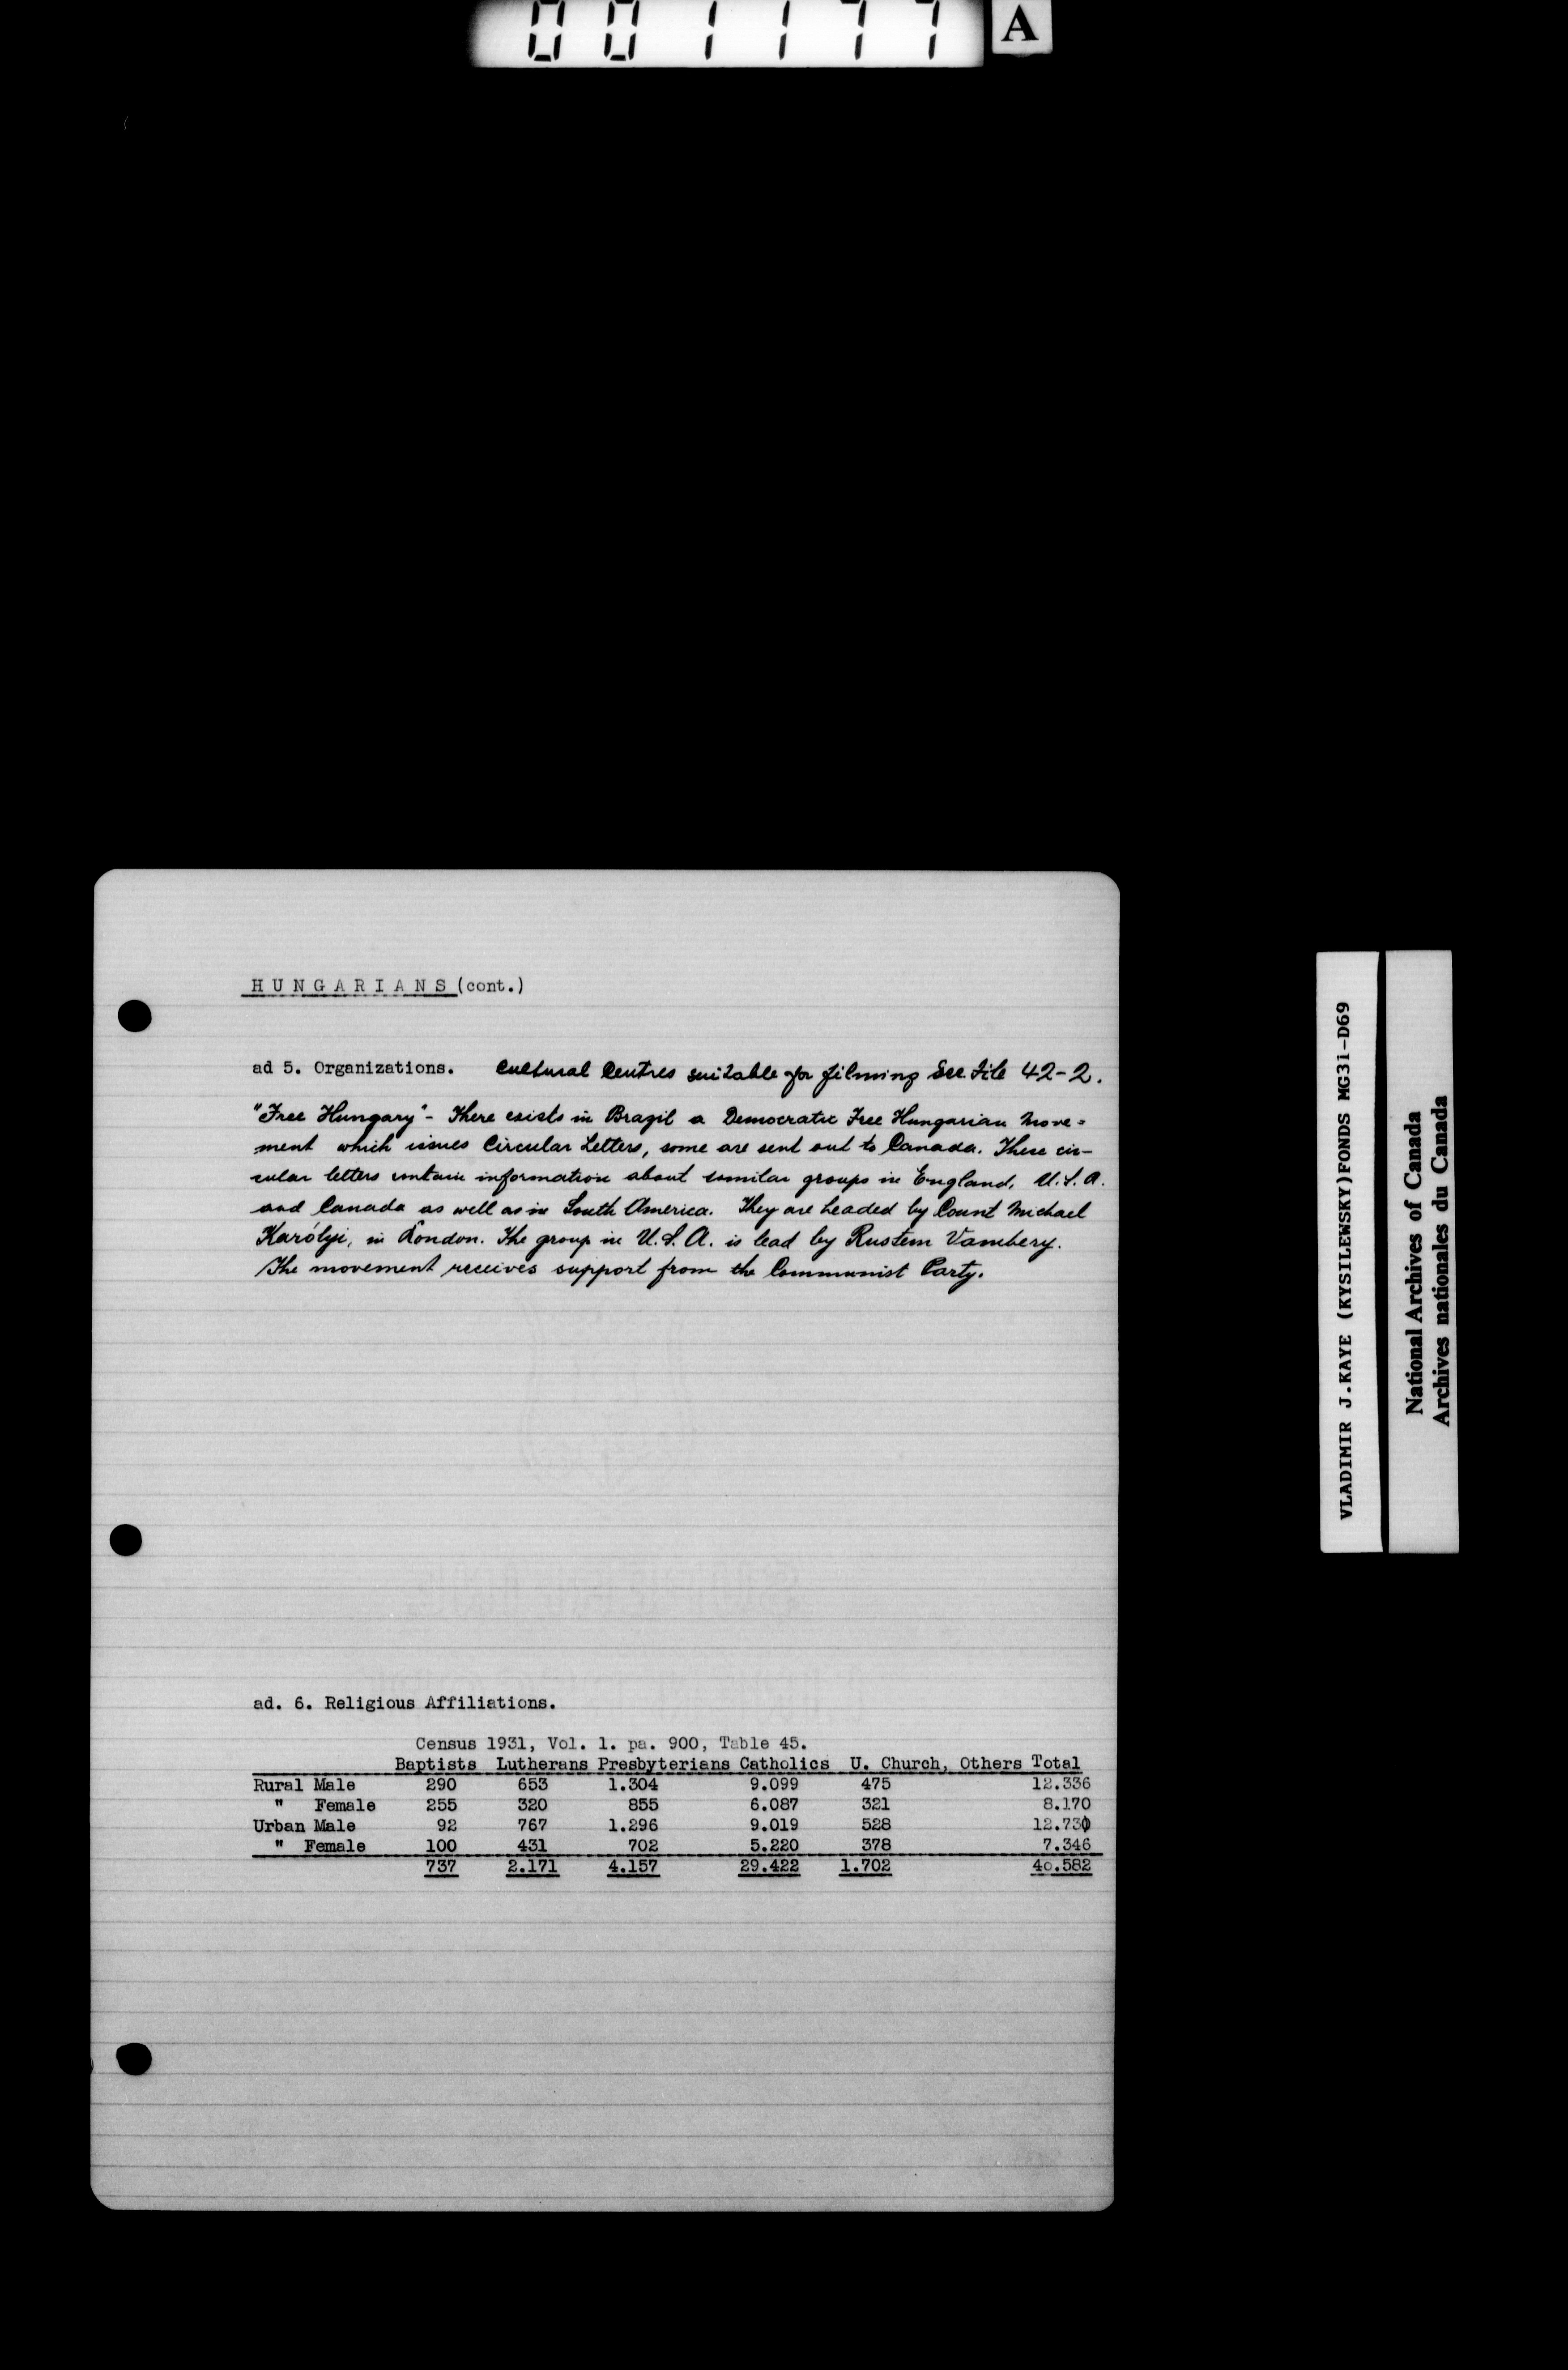 001177 A
HUNGARIANS (cont.)
ad 5. Organizations. Cultural Centres suitable for filming See File 42-2.
"Free Hungary" - There exists in Brazil a Democratic Free Hungarian Move=
ment which issues Circular Letters, some are sent out to Canada. These cir-
cular letters contain information about similar groups in England, U.S.A.
and Canada as well as in South America. They are headed by Count Michael
Karólyi, in London. The group in U.S.A. is lead by Rustem Vambery.
The movement receives support from the Communist Party.
ad. 6. Religious Affiliations.
Census 1931, Vol. 1. pa. 900, Table 45.
Baptists Lutherans Presbyterians Catholics U. Church, Others Total
Rural Male 290 653 1.304 9.099 475 12.336
" Female 255 320 855 6.087 321 8.170
Urban Male 92 767 1.296 9.019 528 12.730
" Female 100 431 702 5.220 378 7.346
737 2.171 4.157 29.422 1.702 40.582
VLADIMIR J.KAYE (KYSILEWSKY)FONDS MG31-D69
National Archives of Canada
Archives nationales du Canada